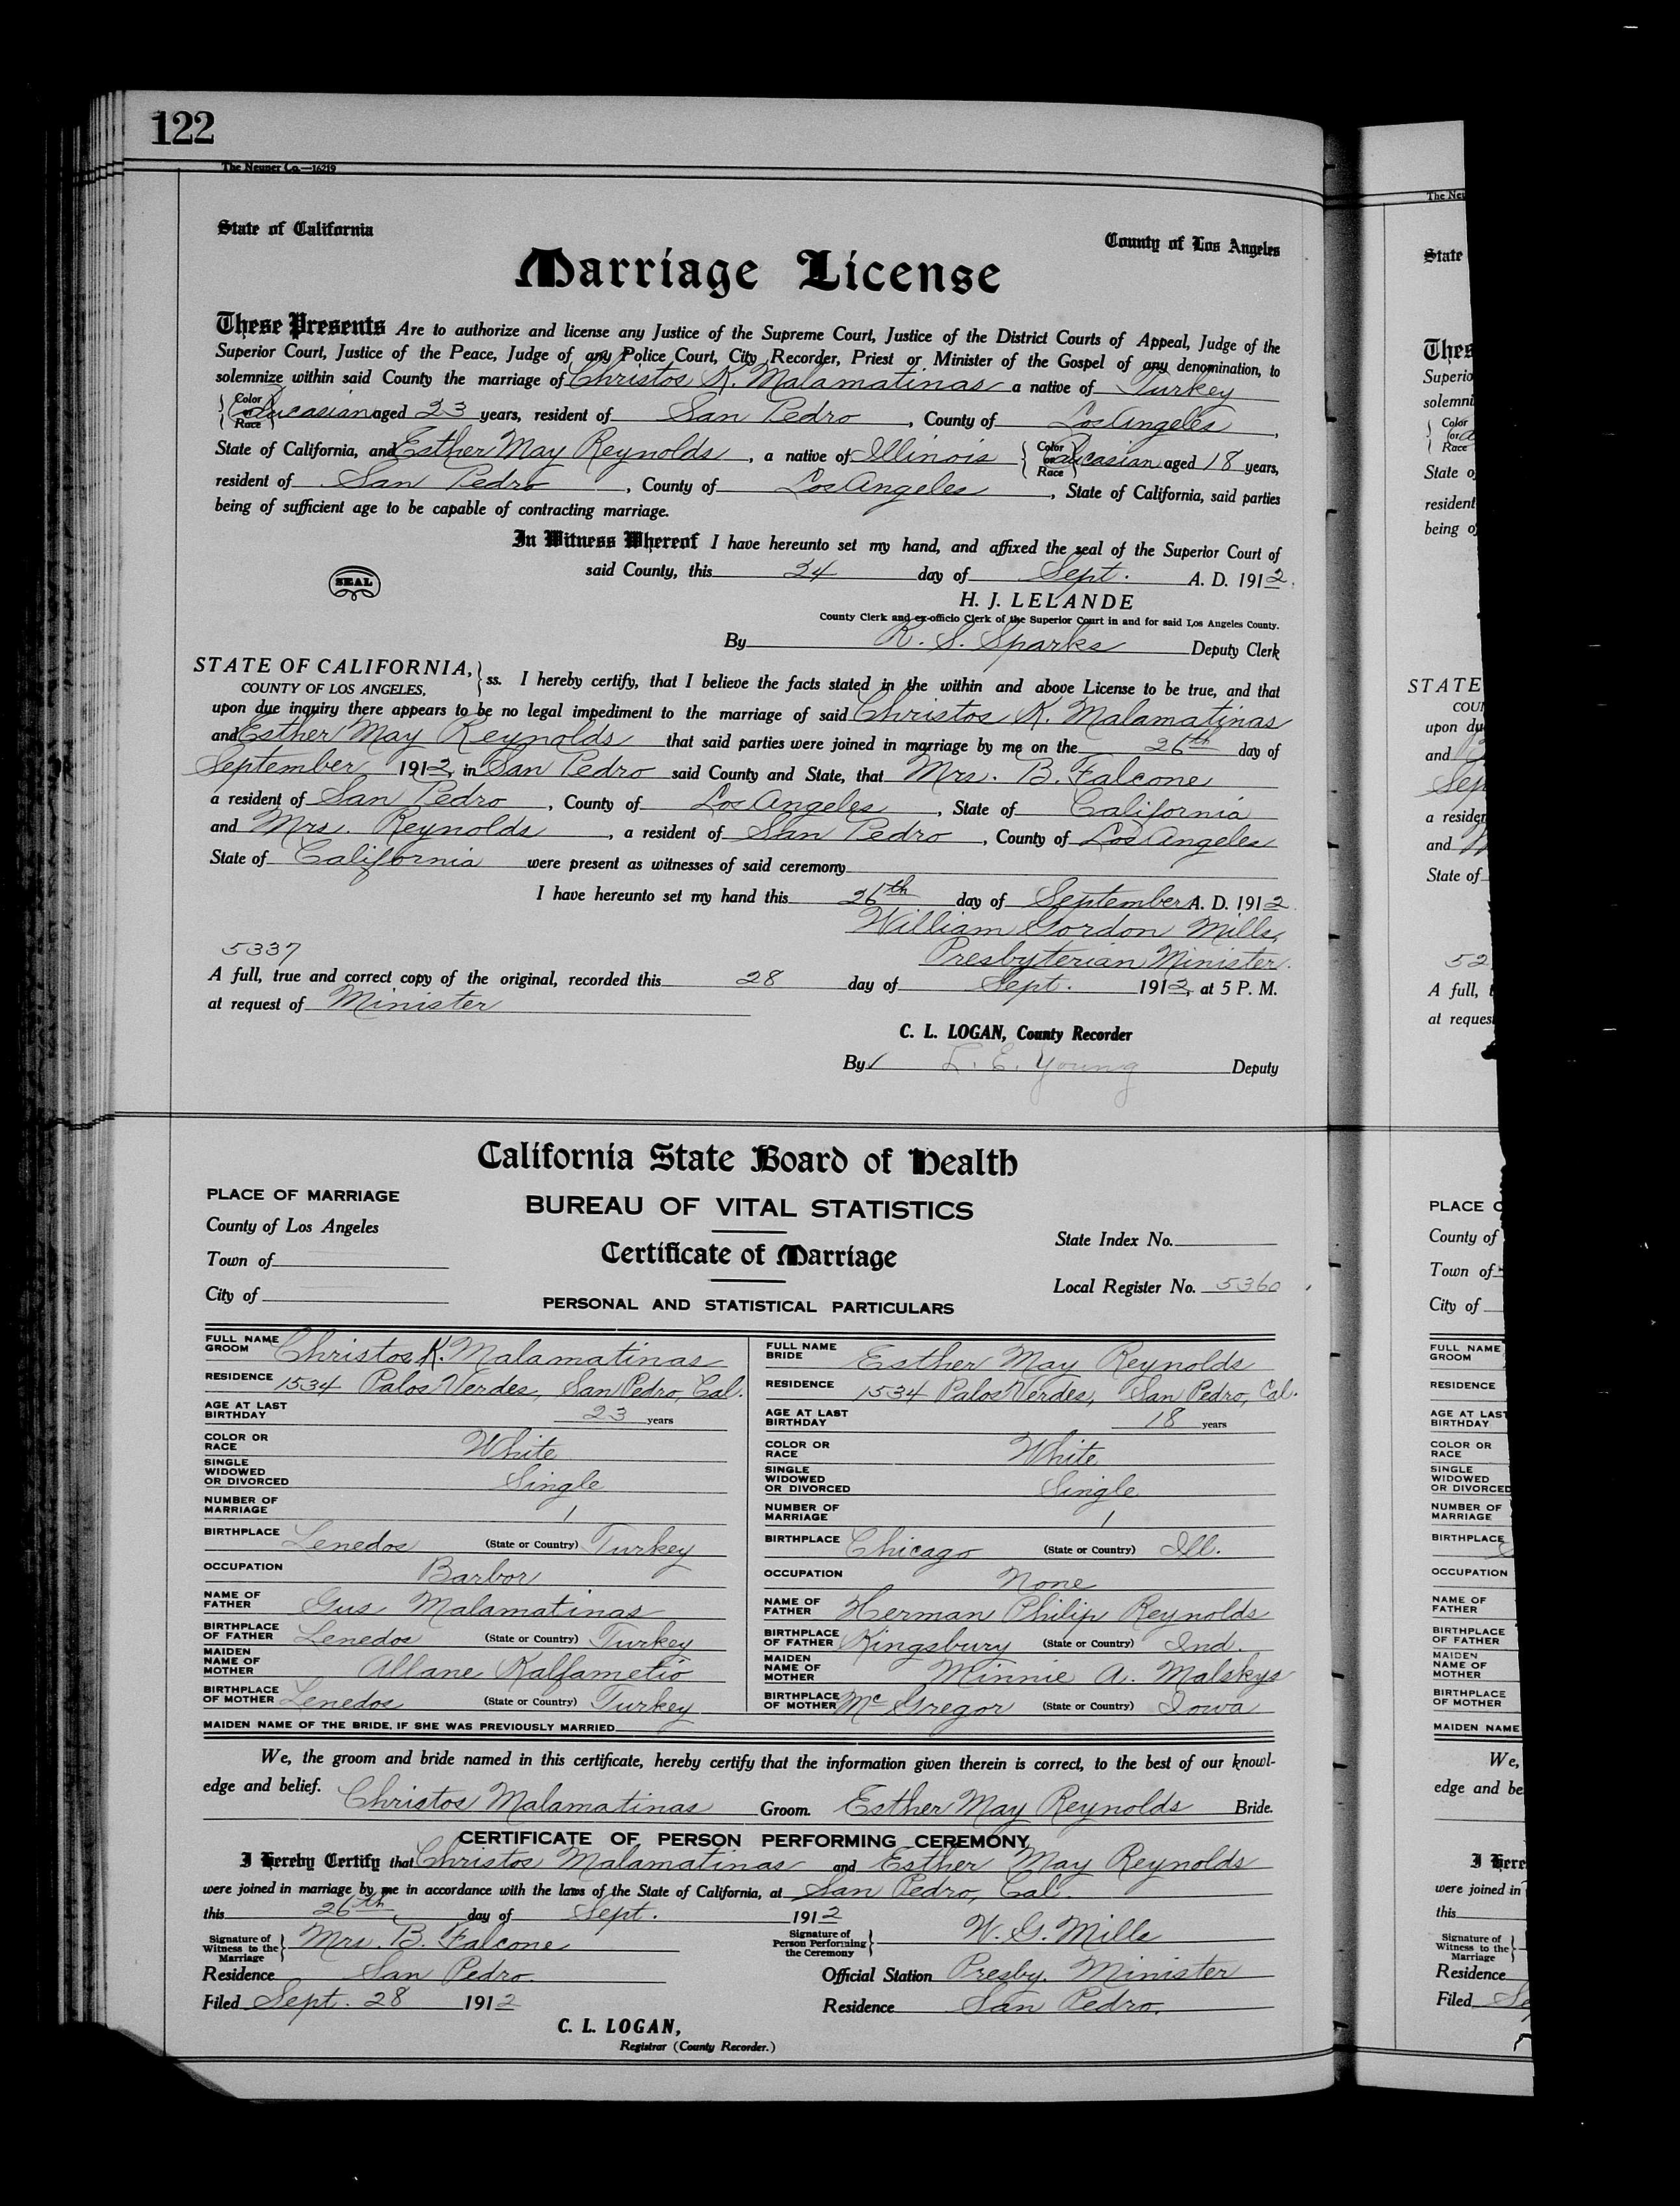 122
The Neuner Co.—16219
State of California
County of Los Angeles
Marriage License
These Presents Are to authorize and license any Justice of the Supreme Court, Justice of the District Courts of Appeal, Judge of the
Superior Court, Justice of the Peace, Judge of any Police Court, City Recorder, Priest or Minister of the Gospel of any denomination, to
solemnize within said County the marriage of Christos K. Malamatinas a native of Turkey
Color or Race Caucasian aged 23 years, resident of San Pedro, County of Los Angeles,
State of California, and Esther May Reynolds, a native of Illinois Color or Race Caucasian aged 18 years,
resident of San Pedro, County of Los Angeles, State of California, said parties
being of sufficient age to be capable of contracting marriage.
In Witness Whereof I have hereunto set my hand, and affixed the seal of the Superior Court of
SEAL said County, this 24 day of Sept. A. D. 1912.
H. J. LELANDE
County Clerk and ex-officio Clerk of the Superior Court in and for said Los Angeles County.
By R. S. Sparks Deputy Clerk
STATE OF CALIFORNIA, COUNTY OF LOS ANGELES, } ss. I hereby certify, that I believe the facts stated in the within and above License to be true, and that
upon due inquiry there appears to be no legal impediment to the marriage of said Christos K. Malamatinas
and Esther May Reynolds that said parties were joined in marriage by me on the 26th day of
September 1912, in San Pedro said County and State, that Mrs. B. Falcone
a resident of San Pedro, County of Los Angeles, State of California
and Mrs. Reynolds, a resident of San Pedro, County of Los Angeles
State of California were present as witnesses of said ceremony
I have hereunto set my hand this 26th day of September A. D. 1912
William Gordon Mills,
Presbyterian Minister.
5337
A full, true and correct copy of the original, recorded this 28 day of Sept. 1912, at 5 P. M.
at request of Minister
C. L. LOGAN, County Recorder
By L. E. Young Deputy
California State Board of Health
BUREAU OF VITAL STATISTICS
Certificate of Marriage
PERSONAL AND STATISTICAL PARTICULARS
PLACE OF MARRIAGE
County of Los Angeles
Town of
City of
State Index No.
Local Register No. 5360
FULL NAME GROOM Christos K. Malamatinas
RESIDENCE 1534 Palos Verdes, San Pedro, Cal.
AGE AT LAST BIRTHDAY 23 years
COLOR OR RACE White
SINGLE WIDOWED OR DIVORCED Single
NUMBER OF MARRIAGE 1
BIRTHPLACE Lenedos (State or Country) Turkey
OCCUPATION Barbor
NAME OF FATHER Gus Malamatinas
BIRTHPLACE OF FATHER Lenedos (State or Country) Turkey
MAIDEN NAME OF MOTHER Allane Kalfametio
BIRTHPLACE OF MOTHER Lenedos (State or Country) Turkey
FULL NAME BRIDE Esther May Reynolds
RESIDENCE 1534 Palos Verdes, San Pedro, Cal.
AGE AT LAST BIRTHDAY 18 years
COLOR OR RACE White
SINGLE WIDOWED OR DIVORCED Single
NUMBER OF MARRIAGE 1
BIRTHPLACE Chicago (State or Country) Ill.
OCCUPATION None
NAME OF FATHER Herman Philip Reynolds
BIRTHPLACE OF FATHER Kingsbury (State or Country) Ind.
MAIDEN NAME OF MOTHER Minnie A. Malskys
BIRTHPLACE OF MOTHER McGregor (State or Country) Iowa
MAIDEN NAME OF THE BRIDE, IF SHE WAS PREVIOUSLY MARRIED
We, the groom and bride named in this certificate, hereby certify that the information given therein is correct, to the best of our knowl-
edge and belief. Christos Malamatinas Groom. Esther May Reynolds Bride.
CERTIFICATE OF PERSON PERFORMING CEREMONY
I Hereby Certify that Christos Malamatinas and Esther May Reynolds
were joined in marriage by me in accordance with the laws of the State of California, at San Pedro, Cal
this 26th day of Sept. 1912
Signature of Witness to the Marriage } Mrs. B. Falcone
Signature of Person Performing the Ceremony } W. G. Mills
Residence San Pedro.
Official Station Presby. Minister
Filed Sept. 28 1912
Residence San Pedro.
C. L. LOGAN,
Registrar (County Recorder.)